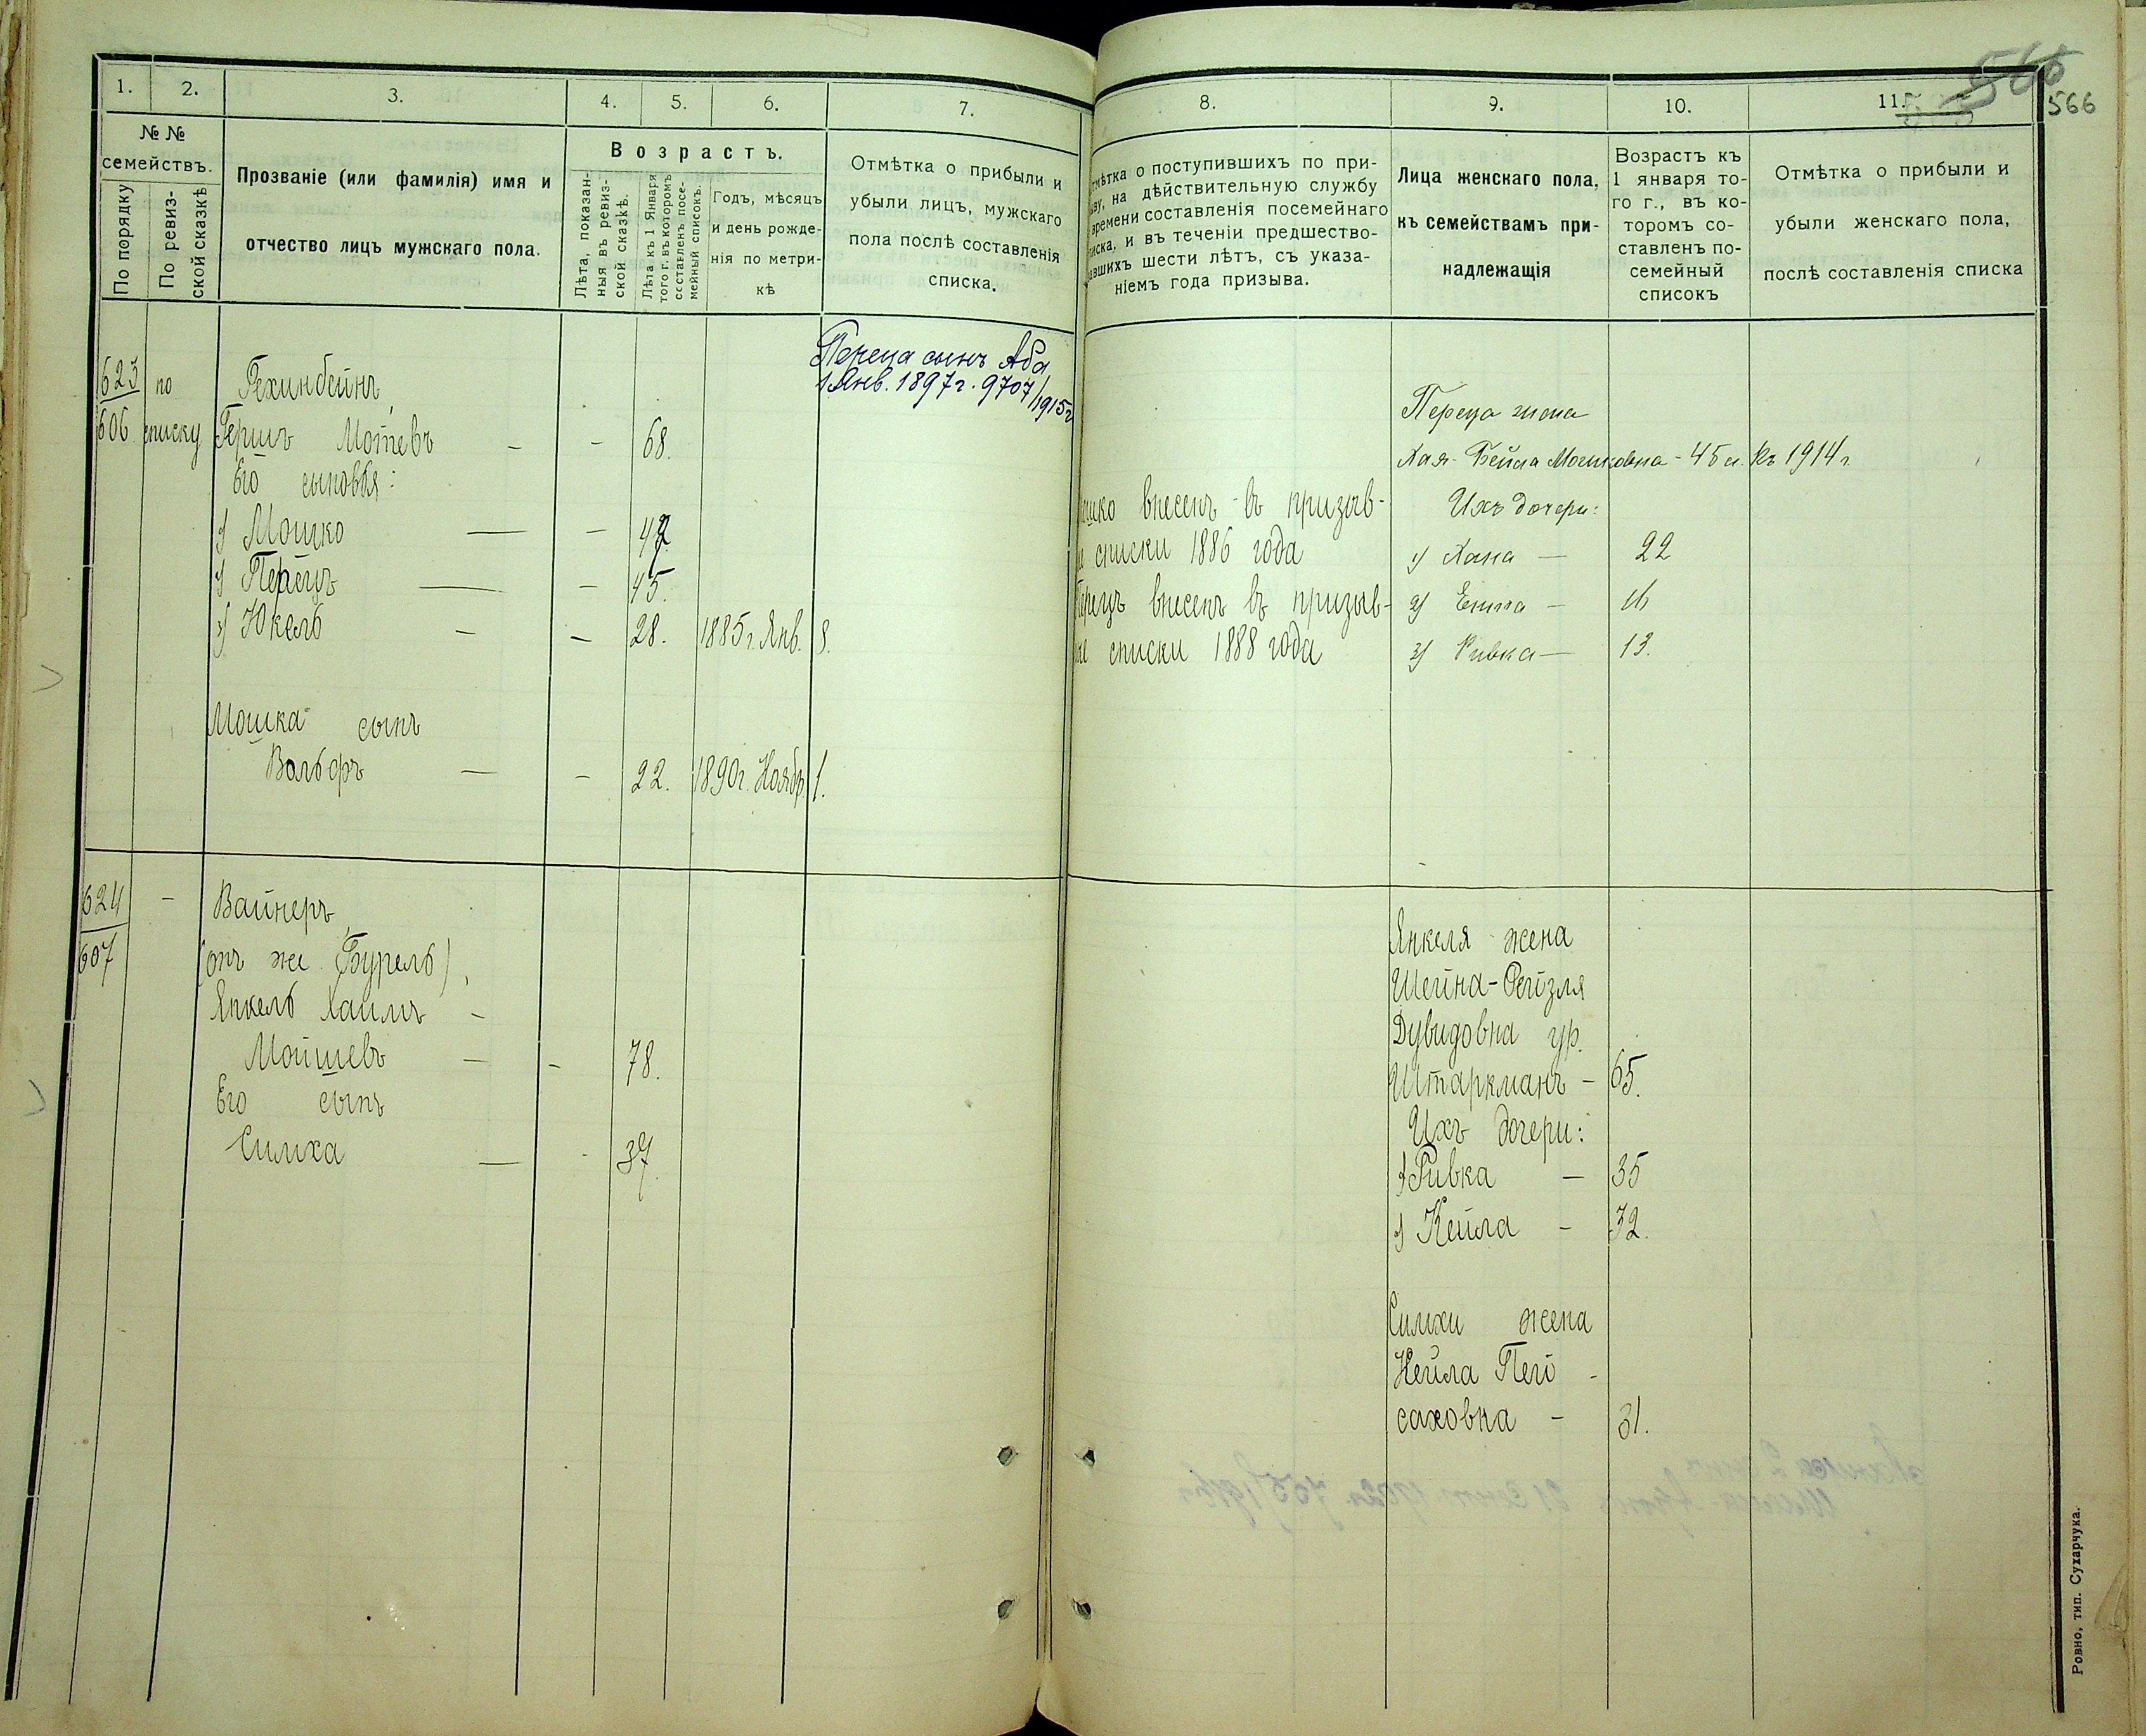 1.
2.
3.
4.
5.
6.
7.
№ №
семействъ.
По порядку
По ревиз-
ской сказкѣ
Прозваніе (или фамилія) имя и
отчество лицъ мужскаго пола.
Возрастъ.
Лѣта, показан-
ныя въ ревиз-
ской сказкѣ.
Лѣта къ 1 Января
того г. въ которомъ
составленъ посе-
мейный списокъ.
Годъ, мѣсяцъ
и день рожде-
нія по метри-
кѣ
Отмѣтка о прибыли и
убыли лицъ, мужскаго
пола послѣ составленія
списка.
Переца сынъ Аба
1 Янв. 1897 г. 9707/1915 г
623 по Рехинбейнъ,
606 списку Гершъ Мотевъ - - 68.
Его сыновья:
1) Мошко — - 47
2) Перецъ — - 45.
3) Юкель - - 28. 1885 г. Янв. 8.
Мошка сынъ
Вольфъ — - 22. 1890 г. Ноябр. 1.
624 - Вайнеръ
607 (онъ же Бурель),
Янкель Хаимъ -
Мойшевъ — - 78.
Его сынъ
Симха — - 37.
8.
9.
10.
11.
566
566
мѣтка о поступившихъ по при-
ыву, на дѣйствительную службу
времени составленія посемейнаго
писка, и въ теченіи предшество-
авшихъ шести лѣтъ, съ указа-
ніемъ года призыва.
Лица женскаго пола,
къ семействамъ при-
надлежащія
Возрастъ къ
1 января то-
го г., въ ко-
торомъ со-
ставленъ по-
семейный
списокъ
Отмѣтка о прибыли и
убыли женскаго пола,
послѣ составленія списка
ошко внесенъ въ призыв-
е списки 1886 года
Перецъ внесенъ въ призыв-
ые списки 1888 года
Переца жена
Хая-Бейла Мошковна - 45 л. къ 1914 г.
Ихъ дочери:
1) Хана — 22
2) Ентa — 16
3) Ривка — 13.
Янкеля жена
Шейна-Рейзля
Дувидовна ур.
Штаркманъ - 65.
Ихъ дочери:
1) Ривка — 35
2) Кейла - 32.
Симхи жена
Нейла Пей-
саховна - 31.
Ровно, тип. Сухарчука.